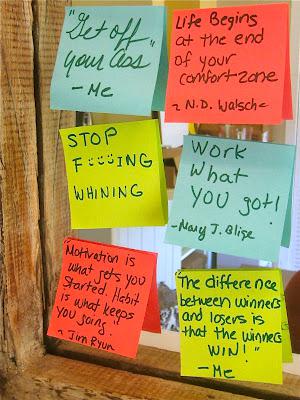 "Get off
your Ass"
- Me
Life Begins
at the end
of your
comfort zone
~ N.D. Walsche
STOP
F☺☺☺ING
WHINING
Work
What
You got!
- Mary J. Blige
"Motivation is
what gets you
started. Habit
is what keeps
you going."
~ Jim Ryun
"The difference
between winners
and losers is
that the winners
WIN!"
- Me